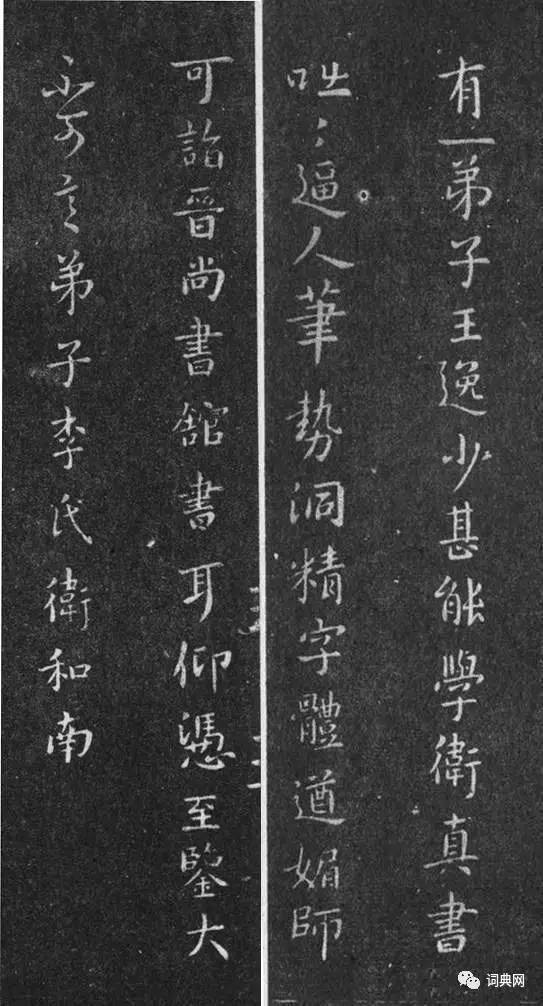 有一弟子王逸少甚能學衛真書
咄〻逼人筆勢洞精字體遒媚師
可詣晉尚書舘書耳仰憑至鑒大
不可言弟子李氏衛和南
词典网